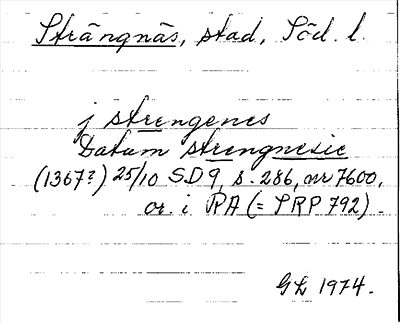 Strängnäs, stad, Söd. l.
j strengenes
Datum strengnesie
(1367?) 25/10 SD 9, s. 286, nr 7600,
or. i RA (= SRP 792).
GL 1974.